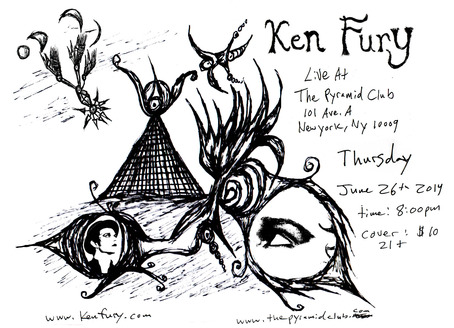 Ken Fury
Live At
The Pyramid Club
101 Ave. A
Newyork, NY 10009
Thursday
June 26th 2014
time: 8:00pm
cover: $10
21+
www.kenfury.com
www.thepyramidclub.com